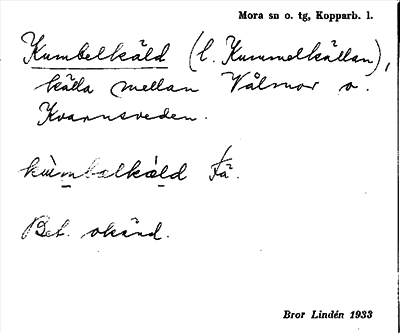 Mora sn o. tg, Kopparb. l.
Kumbelkäld (l. Kummelkällan),
källa mellan Vålmor o.
Kvarnsveden.
Bet. okänd.
Bror Lindén 1933